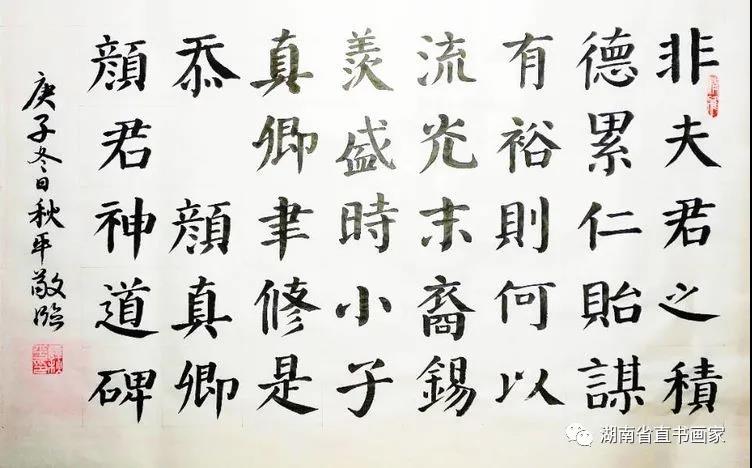 非夫君之積
德累仁貽謀
有裕則何以
流光末裔錫
羡盛時小子
真卿聿修是
忝 顔真卿
顔君神道碑
庚子冬日秋平敬臨
湖南省直书画家